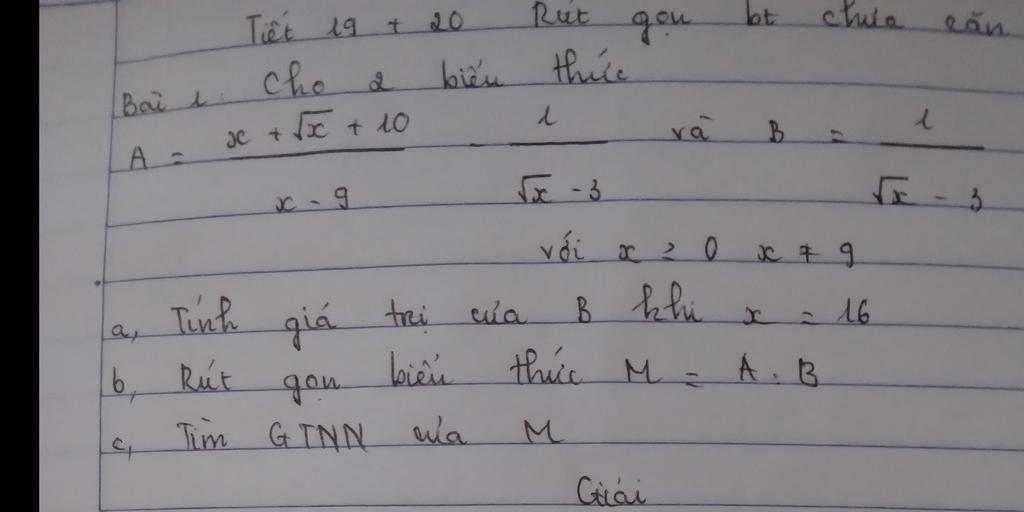 Tiết 19 + 20 Rút gọn bt chứa căn
Bài 1: Cho 2 biểu thức
A = (x + √x + 10)/(x - 9) - 1/(√x - 3) và B = 1/(√x - 3)
với x ≥ 0 x ≠ 9
a, Tính giá trị của B khi x = 16
b, Rút gọn biểu thức M = A : B
c, Tìm GTNN của M
Giải